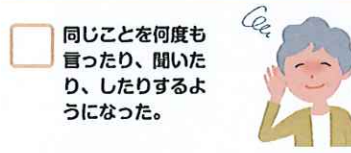 同じことを何度も
言ったり、聞いた
り、したりするよ
うになった。